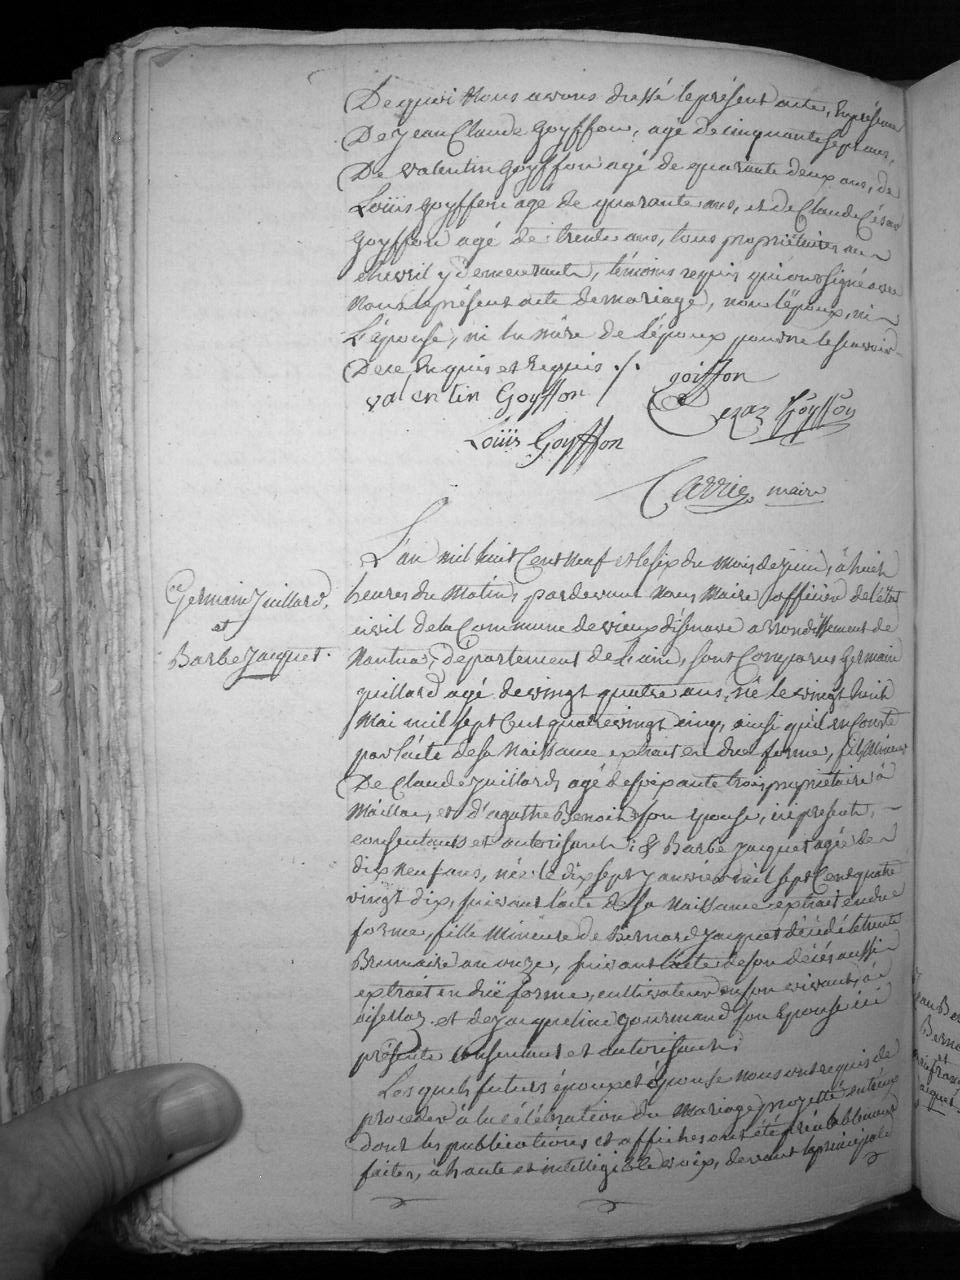 De quoi Nous avons dressé le présent acte, En présence
De Jean Claude Goyffon, agé de cinquante sept ans,
De valentin Goyffon agé de quarante deux ans, de
Loüis Goyffon agé de quarante ans, et de Claude César
Goyffon agé de trente ans, tous propriétaires au
chevril y demeurants, témoins requis qui ont signé avec
Nous le présent acte de mariage, non l'époux, ni
L'épouse, ni la mère de l'époux pour ne le savoir
De ce Enquis et Requis ./.
goiffon
valentin Goyffon
Cezaz Goyffon
Loüis Goyffon
Carrier maire
Germain Juillard,
et
Barbe Jacquet.
L'an mil huit Cent Neuf et le six du Mois de juin, à huit
heures du Matin, pardevant Nous Maire officier de l'état
civil de la Commune de vieux d'isenave arrondissement de
Nantua, Département de l'ain, sont Comparus Germain
juillard agé de vingt quatre ans, né le vingt huit
Mai mil sept Cent quatre vingt cinq, ainsi qu'il en Conste
par l'acte de sa Naissance extrait en due forme, fils Mineur
De Claude juillard, agé de soixante trois, propriétaire à
Maillac, et d'agathe Benoit son épouse, ici présents,
consentants et autorisants; & Barbe Jacquet agée de
dix Neuf ans, née le dix sept janvier mil sept Cent quatre
vingt dix, suivant l'acte de sa Naissance extrait en due
forme, fille Mineure de Bernard Jacquet décédé le trente
Brumaire an onze, suivant l'acte de son décés aussi
extrait en duë forme, cultivateur en son vivant, à
et de jacqueline gourmand son Epouse ici
présente Consentant et autorisant;
Lesquels futurs époux et épouse nous ont requis de
proceder à la célébration du Mariage projetté entr'eux
dont les publications et affiches ont été préalablement
faites, à haute et intelligible voix, devant la principale